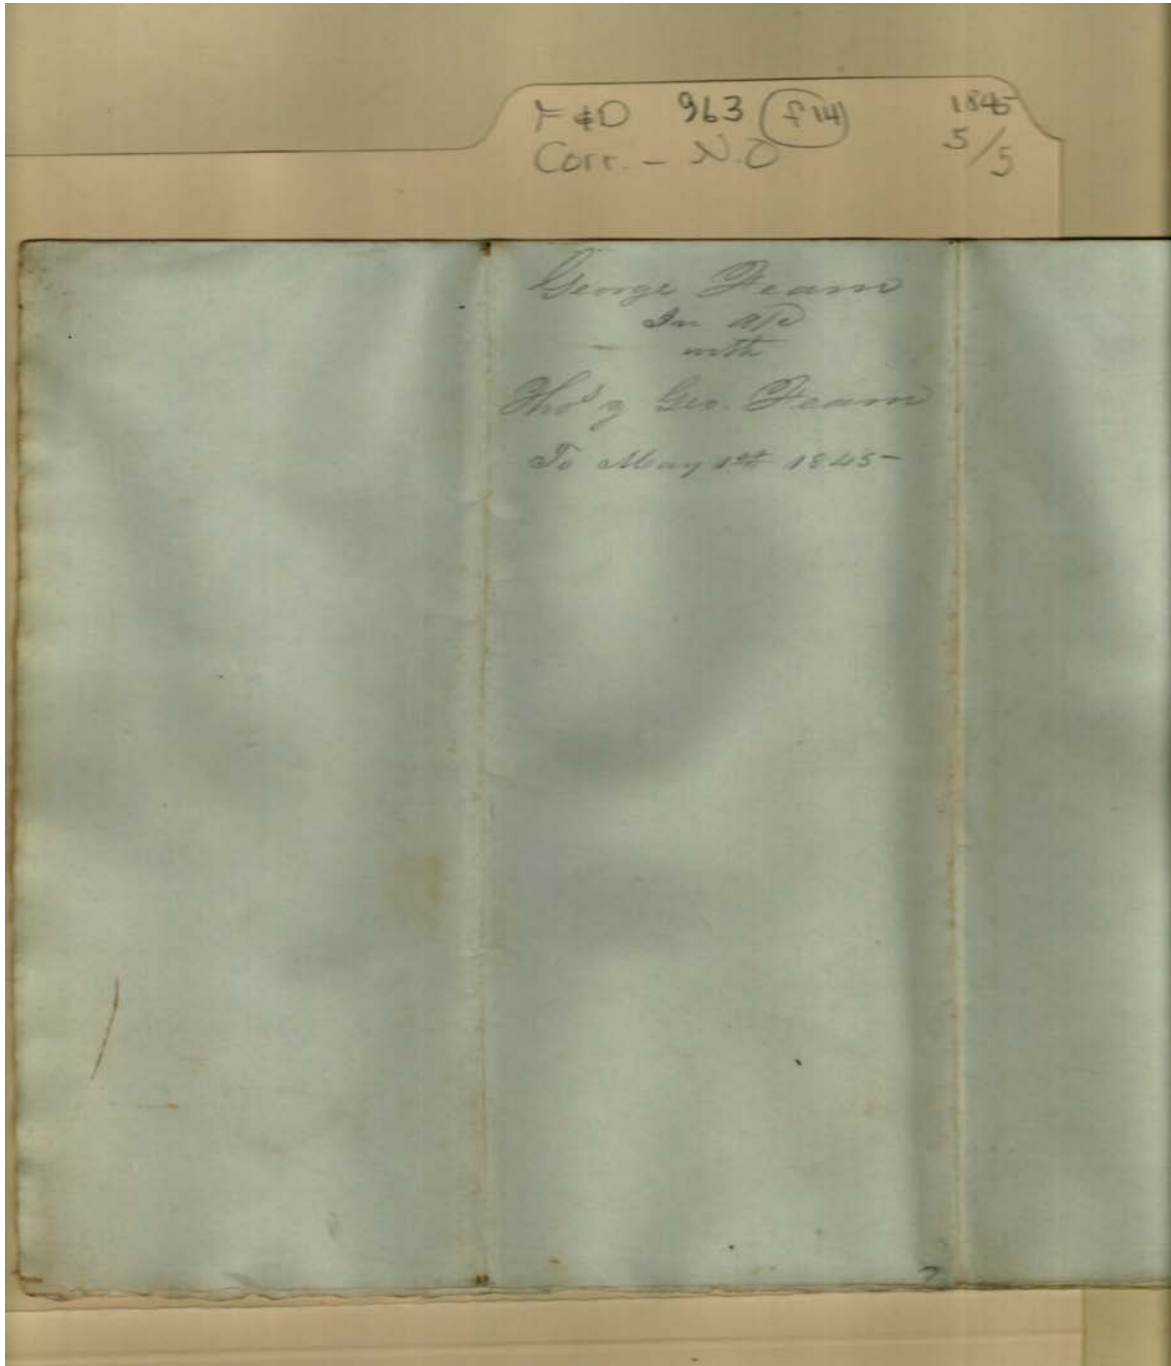 F & D 963 f 14 1845
Corr. - N.O 5/5
George Fearn
In a/c
with
Thos & Geo. Fearn
To May 1st 1845-